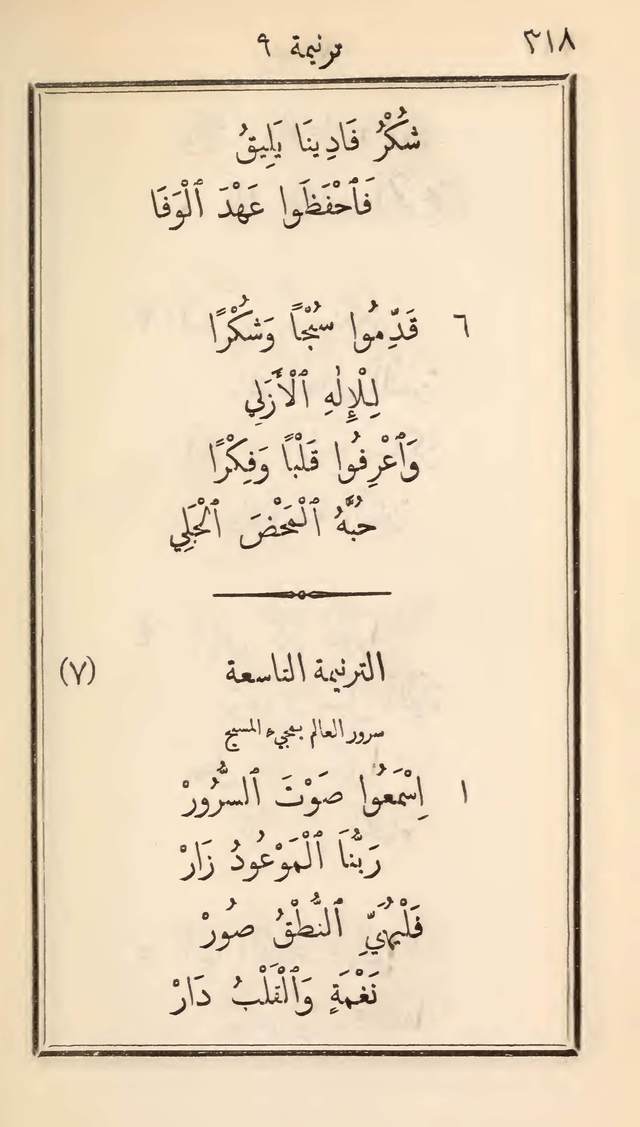 ٣١٨ ترنيمة ٩
شُكْرُ فَادِينَا يَلِيقُ
فَٱحْفَظَوا عَهْدَ ٱلْوَفَا
٦ قَدِّمُوا سُبْحًا وَشُكْرًا
لِلْإِلٰهِ ٱلْأَزَلِي
وَٱعْرِفُوا قَلْبًا وَفِكْرًا
حُبَّهُ ٱلْمَحْضَ ٱلْجَلِي
الترنيمة التاسعة (٧)
سرور العالم بمجيء المسيح
١ اِسْمَعُوا صَوْتَ ٱلسُّرُورْ
رَبُّنَا ٱلْمَوْعُودُ زَارْ
فَلْيُهَيِّ ٱلنُّطْقُ صُورْ
نَغْمَةٍ وَٱلْقَلْبُ دَارْ